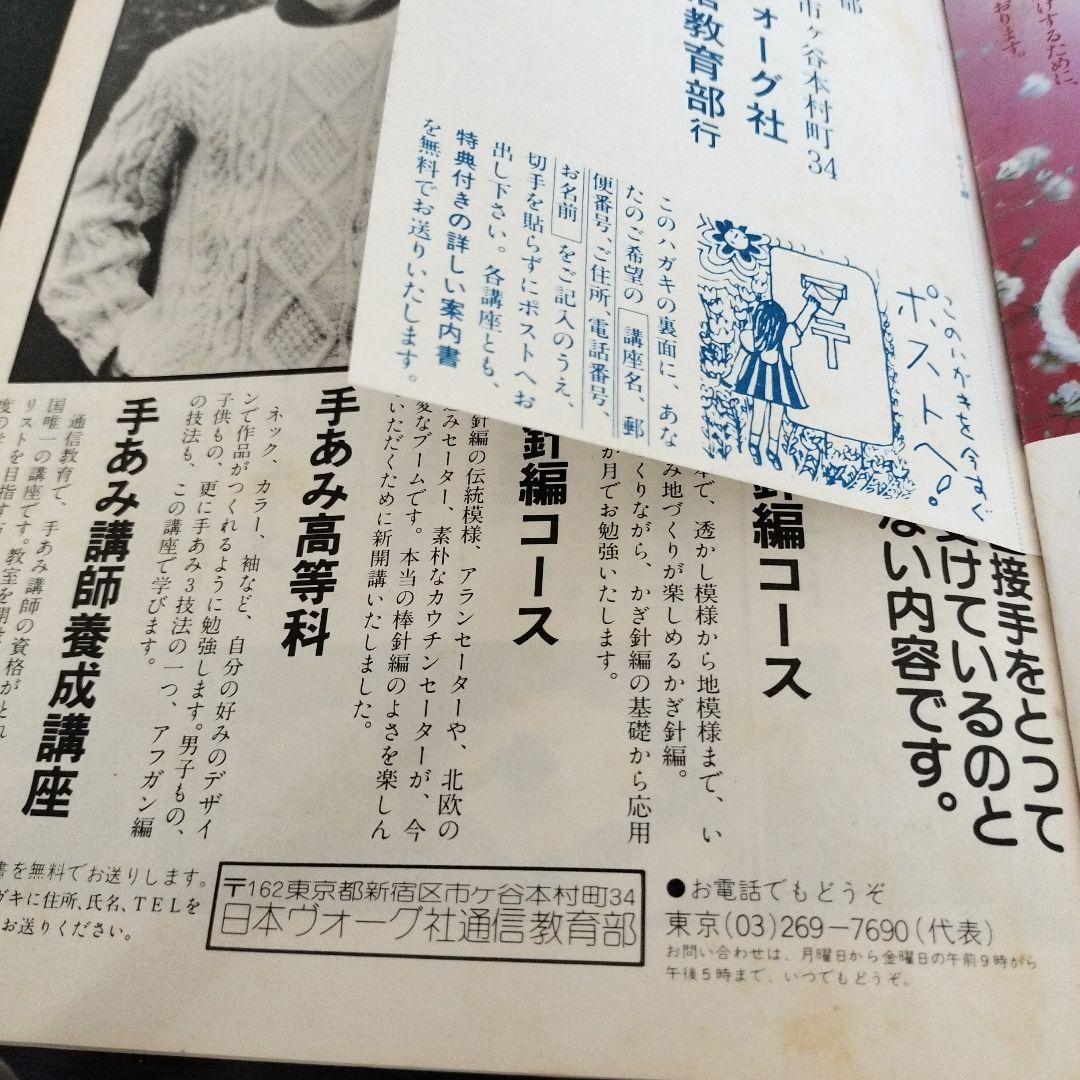 けするために、
おります。
都
市ヶ谷本村町34
ォーグ社
信教育部行
このハガキの裏面に、あな
たのご希望の 講座名、郵
便番号、ご住所、電話番号、
お名前 をご記入のうえ、
切手を貼らずにポストへお
出し下さい。各講座とも、
特典付きの詳しい案内書
を無料でお送りいたします。
このハガキを今すぐ
ポストへ!
接手をとって
受けているのと
ない内容です。
針編コース
で、透かし模様から地模様まで、い
み地づくりが楽しめるかぎ針編。
くりながら、かぎ針編の基礎から応用
か月でお勉強いたします。
針編コース
針編の伝統模様、アランセーターや、北欧の
みセーター、素朴なカウチンセーターが、今
変なブームです。本当の棒針編のよさを楽しん
いただくために新開講いたしました。
手あみ高等科
ネック、カラー、袖など、自分の好みのデザイ
ンで作品がつくれるように勉強します。男子もの、
子供もの、更に手あみ3技法の一つ、アフガン編
の技法も、この講座で学びます。
手あみ講師養成講座
通信教育で、手あみ講師の資格がとれ
国唯一の講座です。教室を開け
リストを目指す方
書を無料でお送りします。
ガキに住所、氏名、TELを
お送りください。
〒162東京都新宿区市ヶ谷本村町34
日本ヴォーグ社通信教育部
●お電話でもどうぞ
東京(03)269-7690(代表)
お問い合わせは、月曜日から金曜日の午前9時から
午後5時まで、いつでもどうぞ。